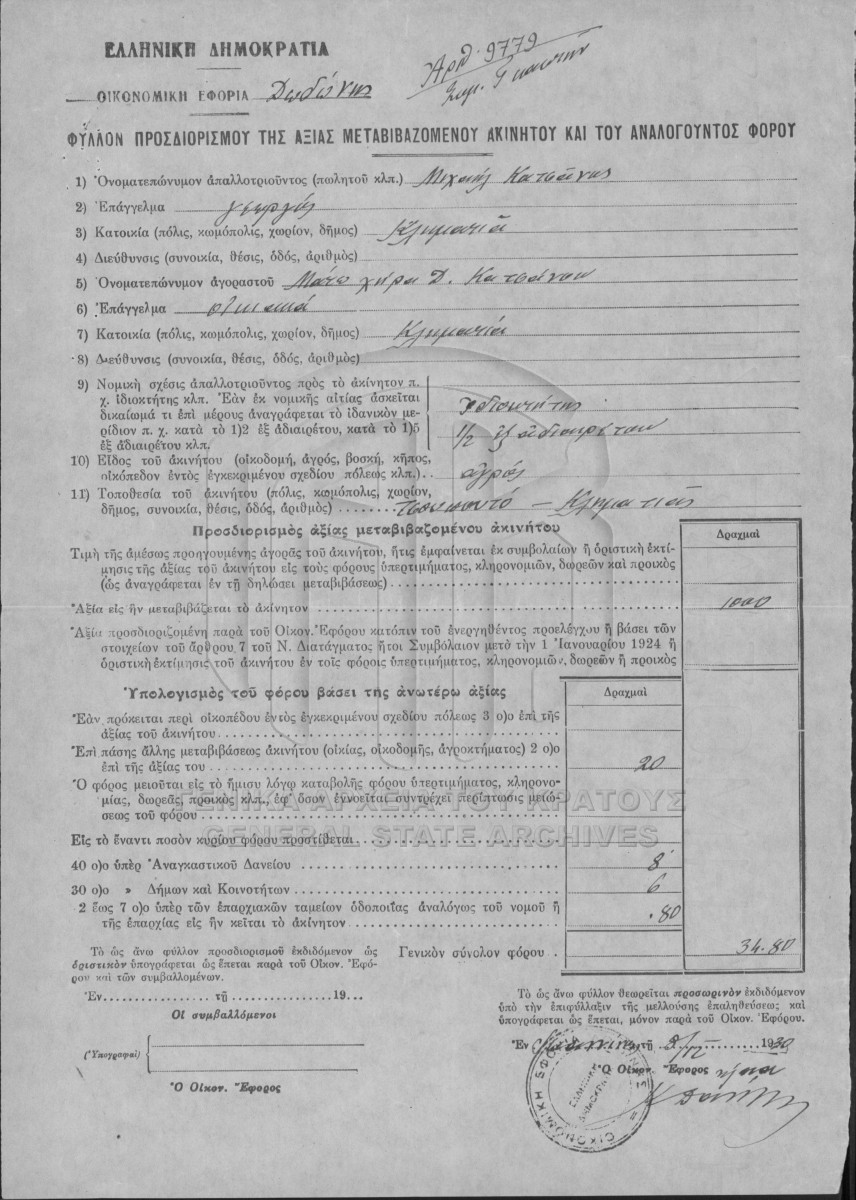 ΕΛΛΗΝΙΚΗ ΔΗΜΟΚΡΑΤΙΑ
Ἀρθ. 9779
ΟΙΚΟΝΟΜΙΚΗ ΕΦΟΡΙΑ Δωδώνης
ΦΥΛΛΟΝ ΠΡΟΣΔΙΟΡΙΣΜΟΥ ΤΗΣ ΑΞΙΑΣ ΜΕΤΑΒΙΒΑΖΟΜΕΝΟΥ ΑΚΙΝΗΤΟΥ ΚΑΙ ΤΟΥ ΑΝΑΛΟΓΟΥΝΤΟΣ ΦΟΡΟΥ
1) Ὀνοματεπώνυμον ἀπαλλοτριοῦντος (πωλητοῦ κλπ.) Μιχαήλ Κατσάνης
2) Ἐπάγγελμα γεωργός
3) Κατοικία (πόλις, κωμόπολις, χωρίον, δῆμος) Κληματιά
4) Διεύθυνσις (συνοικία, θέσις, ὁδός, ἀριθμὸς)
5) Ὀνοματεπώνυμον ἀγοραστοῦ Μάτω χήρα Δ. Κατσάνου
6) Ἐπάγγελμα οἰκιακά
7) Κατοικία (πόλις, κωμόπολις, χωρίον, δῆμος) Κληματιά
8) Διεύθυνσις (συνοικία, θέσις, ὁδός, ἀριθμὸς)
9) Νομικὴ σχέσις ἀπαλλοτριοῦντος πρὸς τὸ ἀκίνητον π.
χ. ἰδιοκτήτης κλπ. Ἐὰν ἐκ νομικῆς αἰτίας ἀσκεῖται
δικαίωμά τι ἐπὶ μέρους ἀναγράφεται τὸ ἰδανικὸν με-
ρίδιον π. χ. κατὰ τὸ 1)2 ἐξ ἀδιαιρέτου, κατὰ τὸ 1)5
ἐξ ἀδιαιρέτου κλπ.
ἰδιοκτήτης
1/2 ἐξ ἀδιαιρέτου
10) Εἶδος τοῦ ἀκινήτου (οἰκοδομή, ἀγρός, βοσκή, κῆπος,
οἰκόπεδον ἐντὸς ἐγκεκριμένου σχεδίου πόλεως κλπ.) ἀγρός
11) Τοποθεσία τοῦ ἀκινήτου (πόλις, κωμόπολις, χωρίον,
δῆμος, συνοικία, θέσις, ὁδός, ἀριθμὸς) – Κληματιάς
Προσδιορισμὸς ἀξίας μεταβιβαζομένου ἀκινήτου
Δραχμαὶ
Τιμὴ τῆς ἀμέσως προηγουμένης ἀγορᾶς τοῦ ἀκινήτου, ἥτις ἐμφαίνεται ἐκ συμβολαίων ἢ ὁριστικὴ ἐκτί-
μησις τῆς ἀξίας τοῦ ἀκινήτου εἰς τοὺς φόρους ὑπερτιμήματος, κληρονομιῶν, δωρεῶν καὶ προικὸς
(ὡς ἀναγράφεται ἐν τῇ δηλώσει μεταβιβάσεως)
Ἀξία εἰς ἣν μεταβιβάζεται τὸ ἀκίνητον 1000
Ἀξία προσδιοριζομένη παρὰ τοῦ Οἰκον. Ἐφόρου κατόπιν τοῦ ἐνεργηθέντος προελέγχου ἢ βάσει τῶν
στοιχείων τοῦ ἄρθρου 7 τοῦ Ν. Διατάγματος ἤτοι Συμβόλαιον μετὸ τὴν 1 Ἰανουαρίου 1924 ἢ
ὁριστικὴ ἐκτίμησις τοῦ ἀκινήτου ἐν τοῖς φόροις ὑπερτιμήματος, κληρονομιῶν, δωρεῶν ἢ προικὸς
Ὑπολογισμὸς τοῦ φόρου βάσει τῆς ἀνωτέρω ἀξίας
Δραχμαὶ
Ἐὰν πρόκειται περὶ οἰκοπέδου ἐντὸς ἐγκεκριμένου σχεδίου πόλεως 3 ο)ο ἐπὶ τῆς
ἀξίας τοῦ ἀκινήτου
Ἐπὶ πάσης ἄλλης μεταβιβάσεως ἀκινήτου (οἰκίας, οἰκοδομῆς, ἀγροκτήματος) 2 ο)ο
ἐπὶ τῆς ἀξίας του 20
Ὁ φόρος μειοῦται εἰς τὸ ἥμισυ λόγῳ καταβολῆς φόρου ὑπερτιμήματος, κληρονο-
μίας, δωρεᾶς, προικὸς κλπ., ἐφ' ὅσον ἐννοεῖται συντρέχει περίπτωσις μειώ-
σεως τοῦ φόρου
ΓΕΝΙΚΑ ΑΡΧΕΙΑ ΤΟΥ ΚΡΑΤΟΥΣ
GENERAL STATE ARCHIVES
Εἰς τὸ ἔναντι ποσὸν κυρίου φόρου προστίθεται
40 ο)ο ὑπὲρ Ἀναγκαστικοῦ Δανείου 8
30 ο)ο » Δήμων καὶ Κοινοτήτων 6
2 ἕως 7 ο)ο ὑπὲρ τῶν ἐπαρχιακῶν ταμείων ὁδοποιΐας ἀναλόγως τοῦ νομοῦ ἢ
τῆς ἐπαρχίας εἰς ἣν κεῖται τὸ ἀκίνητον .80
Γενικὸν σύνολον φόρου 34.80
Τὸ ὡς ἄνω φύλλον προσδιορισμοῦ ἐκδιδόμενον ὡς
ὁριστικὸν ὑπογράφεται ὡς ἕπεται παρὰ τοῦ Οἰκον. Ἐφό-
ρου καὶ τῶν συμβαλλομένων.
Ἐν τῇ 19
Οἱ συμβαλλόμενοι
(Ὑπογραφαὶ)
Ὁ Οἰκον. Ἔφορος
Τὸ ὡς ἄνω φύλλον θεωρεῖται προσωρινὸν ἐκδιδόμενον
ὑπὸ τὴν ἐπιφύλλαξιν τῆς μελλούσης ἐπαληθεύσεως καὶ
ὑπογράφεται ὡς ἕπεται, μόνον παρὰ τοῦ Οἰκον. Ἐφόρου.
Ἐν τῇ 1930
Ὁ Οἰκον. Ἔφορος
ΟΙΚΟΝΟΜΙΚΗ ΕΦΟΡ
ΕΛΛΗΝΙΚΗ
ΔΗΜΟΚΡΑΤΙΑ